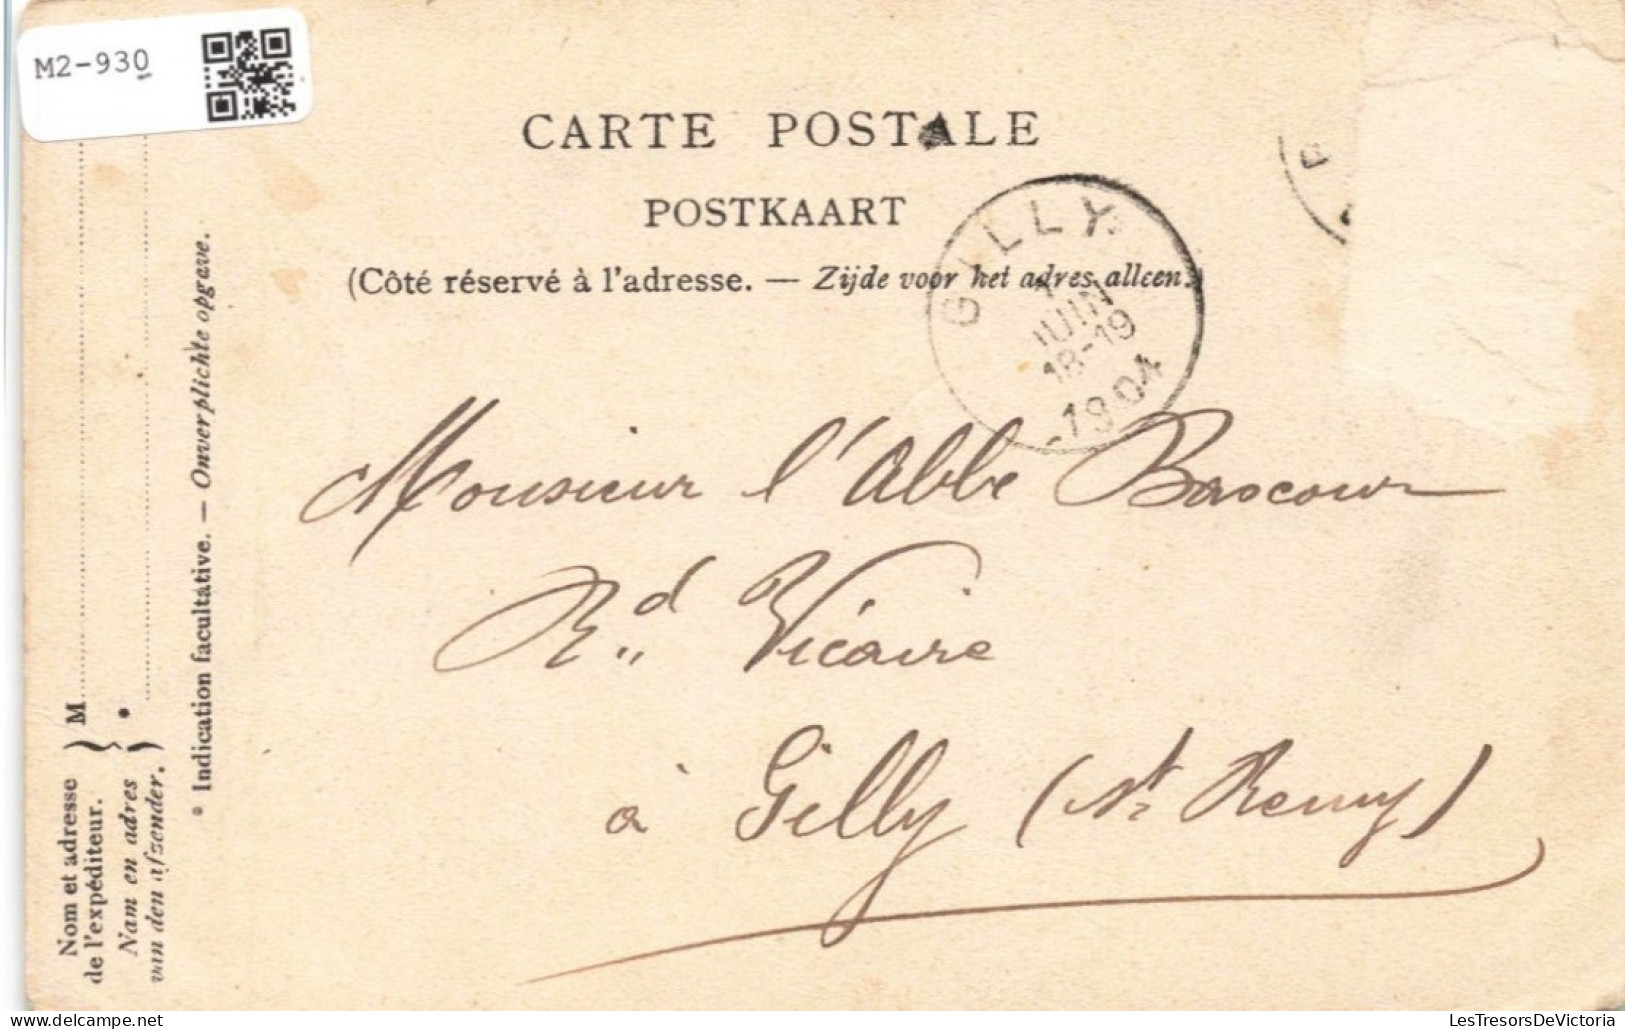 M2-930
CARTE POSTALE
POSTKAART
(Côté réservé à l'adresse. — Zijde voor het adres alleen.)
GILLY
1
JUIN
18-19
1904
Monsieur l'Abbé Bascour
Rd Vicaire
à Gilly (St Remy)
Nom et adresse
de l'expéditeur.
Nam en adres
van den afzender.
M
*
* Indication facultative. — Onverplichte opgave.
LesTresorsDeVictoria